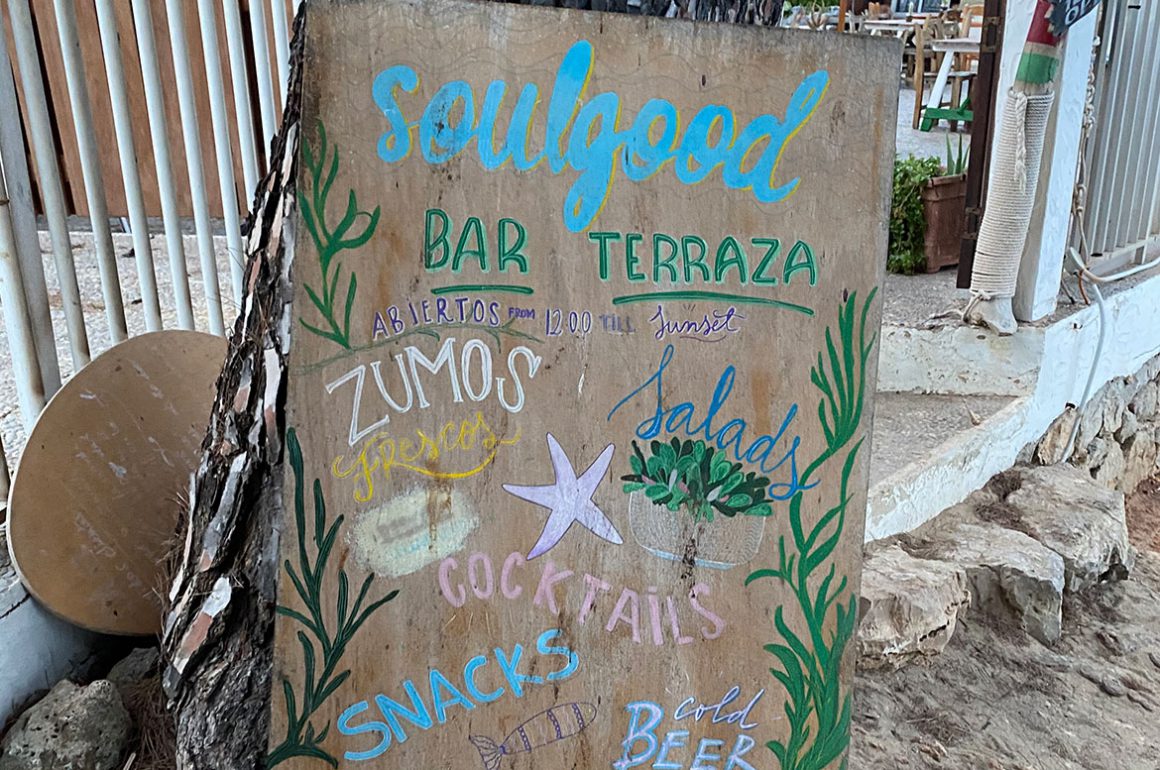 soulgood
BAR TERRAZA
ABIERTOS FROM 12:00 TILL Sunset
ZUMOS
FRESCOS
Salads
COCKTAILS
SNACKS
cold
BEER